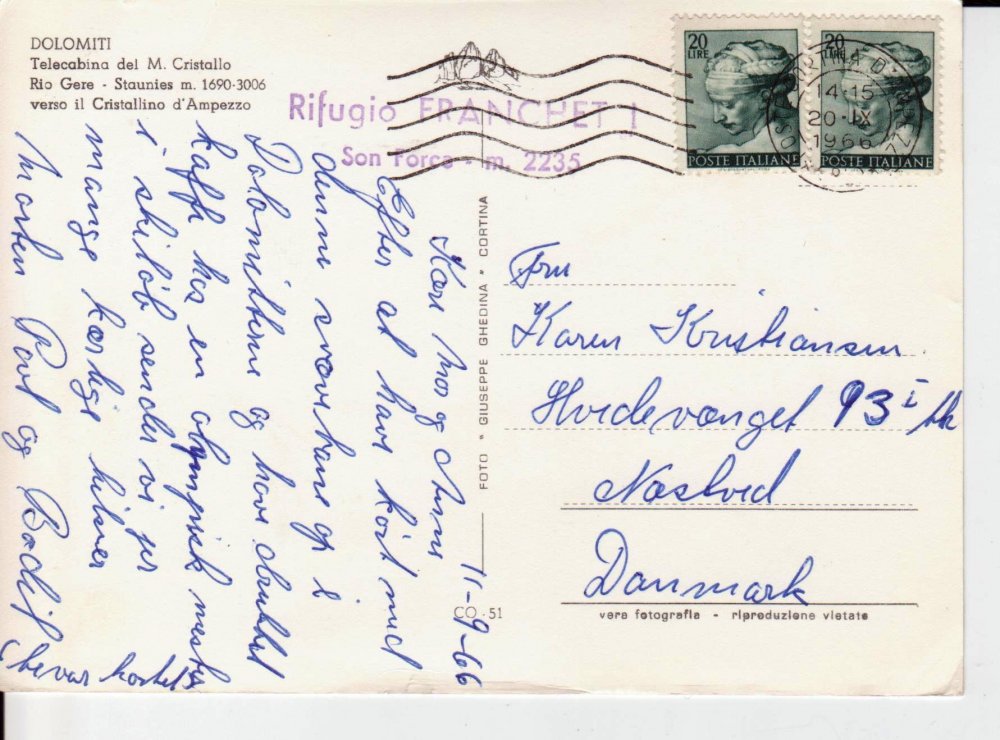 DOLOMITI
Telecabina del M. Cristallo
Rio Gere - Staunies m. 1690-3006
verso il Cristallino d'Ampezzo
Rifugio FRANCHETTI
Son Forca - m. 2235
20
LIRE
POSTE ITALIANE
20
LIRE
POSTE ITALIANE
CORTINA D'
14-15
20-IX
1966
11-9-66
Kære Mor og Anni
Efter at have kørt med
denne svævebane op i
Dolomitterne og have drukket
kaffe hos en olympisk mester
i skiløb sender vi jer
mange kærlige hilsner
Morten Povl og Bodil
(bevar kortet)
FOTO * GIUSEPPE GHEDINA * CORTINA
CO - 51
Fru
Karen Kristiansen
Hvidevænget 93 i
Næstved
Danmark
vera fotografia - riproduzione vietata